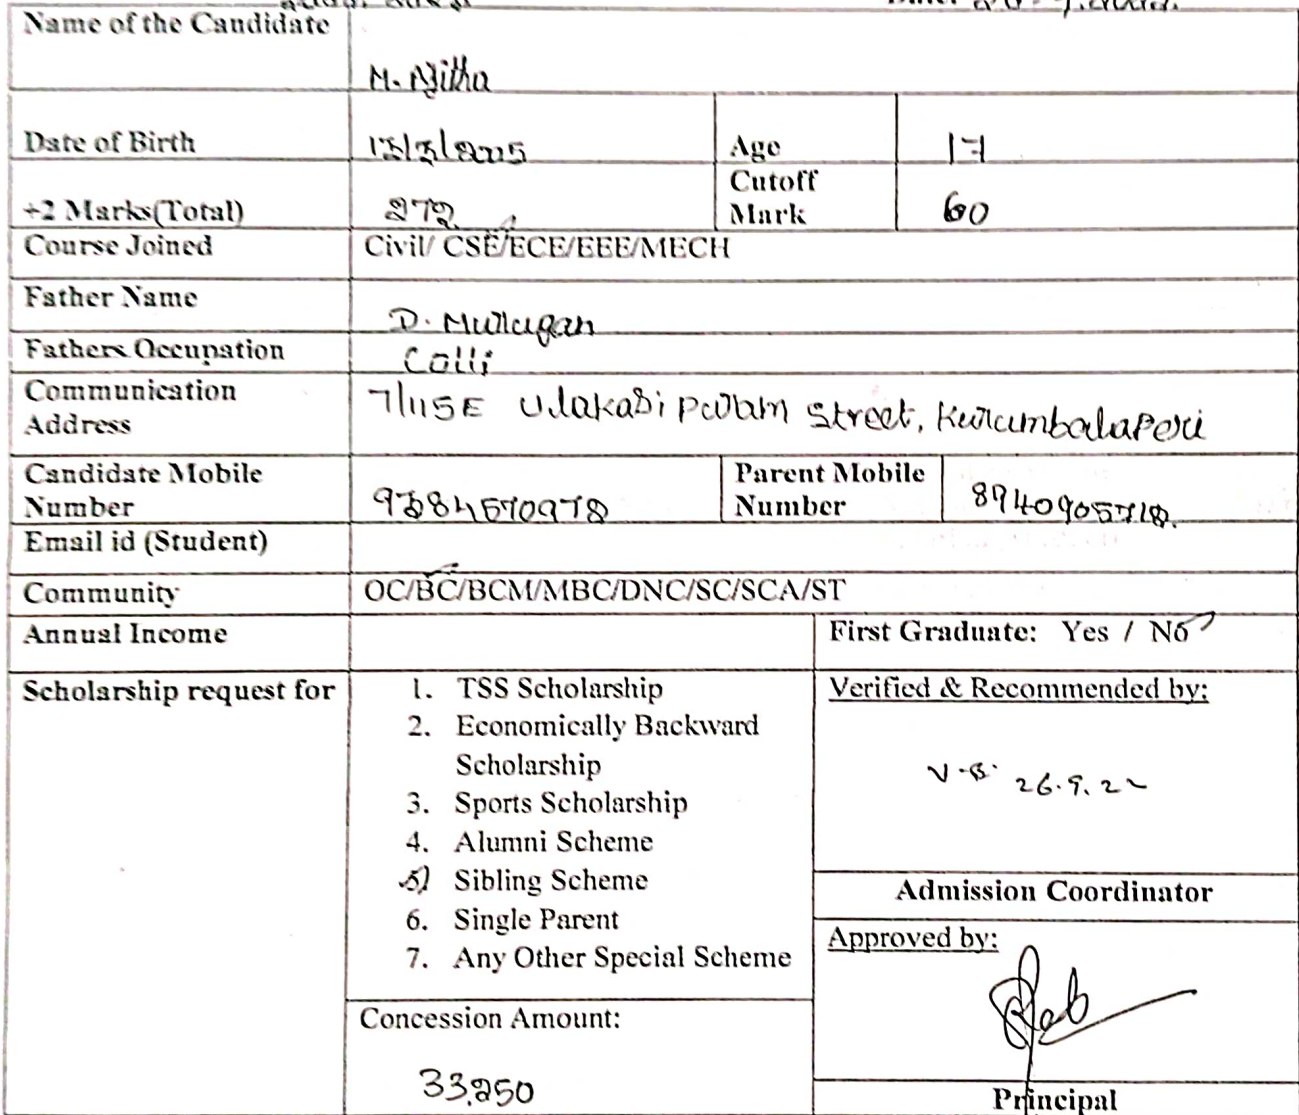 Name of the Candidate
M. Ajitha
Date of Birth 13/3/2005 Age 17
+2 Marks(Total) 272 Cutoff Mark 60
Course Joined Civil/ CSE/ECE/EEE/MECH
Father Name D. Murugan
Fathers Occupation Colli
Communication 7/115E Street, Kurumbalaperi
Address
Candidate Mobile Number 9384570978 Parent Mobile Number
Email id (Student)
Community OC/BC/BCM/MBC/DNC/SC/SCA/ST
Annual Income First Graduate: Yes / No
Scholarship request for
1. TSS Scholarship
2. Economically Backward
Scholarship
3. Sports Scholarship
4. Alumni Scheme
5) Sibling Scheme
6. Single Parent
7. Any Other Special Scheme
Concession Amount:
33,250
Verified & Recommended by:
26.9.22
Admission Coordinator
Approved by:
Principal